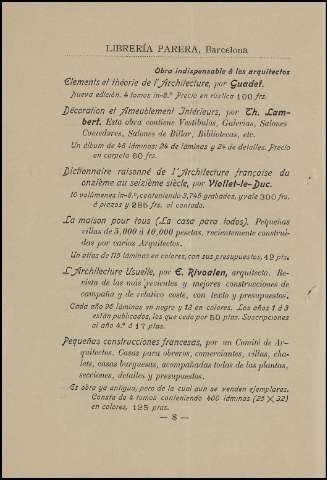 LIBRERÍA PARERA, Barcelona
Obra indispensable á los arquitectos
Elements et théorie de l'Architecture, por Guadet.
Nueva edición. 4 tomos in-8.º Precio en rústica 100 frs.
Décoration et Ameublement Intérieurs, por Th. Lam-
bert. Esta obra contiene Vestíbulos, Galerías, Salones
Comedores, Salones de Billar, Bibliotecas, etc.
Un álbum de 48 láminas: 24 de láminas y 24 de detalles. Precio
en carpeta 60 frs.
Dictionnaire raisonné de l'Architecture française du
onzième au seizième siècle, por Viollet-le-Duc.
10 volúmenes in-8.º, conteniendo 3,745 grabados, y vale 300 frs.
á plazos y 285 frs. al contado.
La maison pour tous (La casa para todos). Pequeñas
villas de 5,000 á 40,000 pesetas, recientemente construí-
das por varios Arquitectos.
Un atlas de 115 láminas en colores, con sus presupuestos, 42 pts.
L'Architecture Usuelle, por E. Rivoalen, arquitecto. Re-
vista de las más recientes y mejores construcciones de
campaña y de relativo coste, con texto y presupuestos.
Cada año 96 láminas en negro y 12 en colores. Los años 1 á 3
están publicados, los que cedo por 50 ptas. Suscripciones
al año 4.º á 17 ptas.
Pequeñas construcciones francesas, por un Comité de Ar-
quitectos. Casas para obreros, comerciantes, villas, cha-
lets, casas burguesas, acompañadas todas de las plantas,
secciones, detalles y presupuestos.
Es obra ya antigua, pero de la cual aun se venden ejemplares.
Consta de 4 tomos conteniendo 400 láminas (25 × 32)
en colores, 125 ptas.
— 8 —